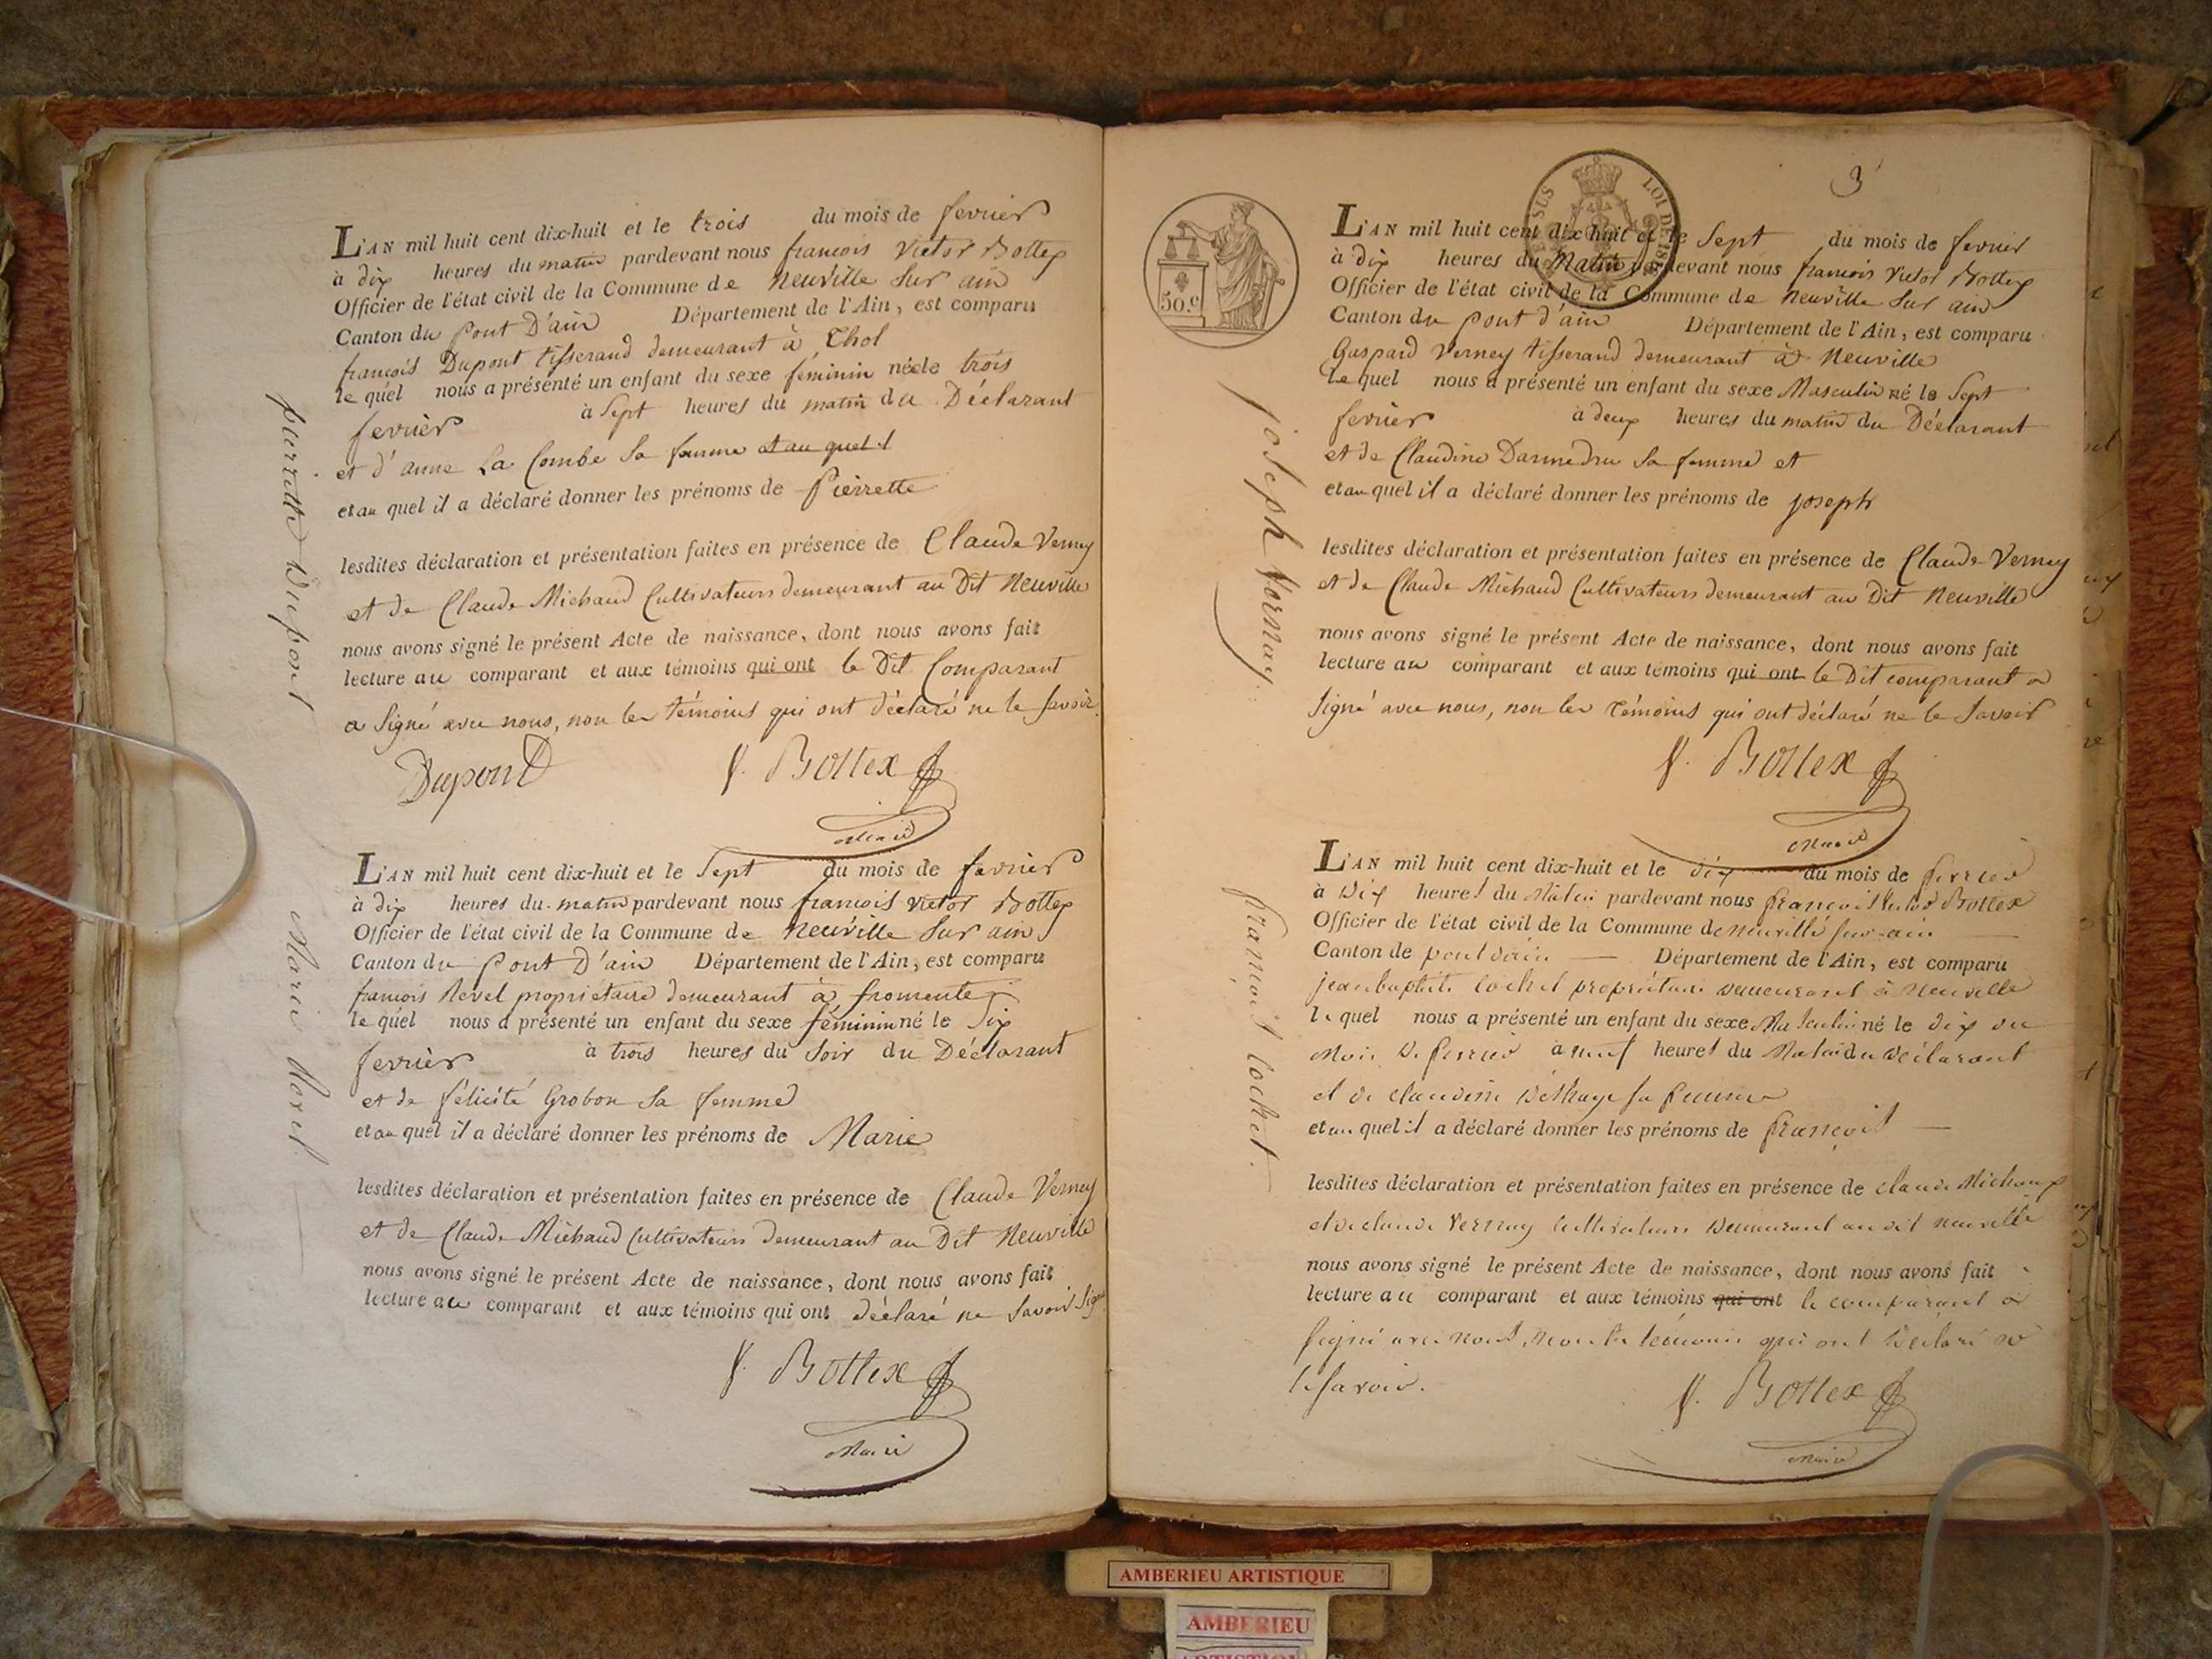 L'AN mil huit cent dix-huit et le trois du mois de fevrier
à dix heures du matin pardevant nous francois Victor Bottex
Officier de l'état civil de la Commune de Neuville sur ain
Canton du Pont D'ain Département de l'Ain, est comparu
francois Dupont tisserand demeurant à Thol
le quel nous a présenté un enfant du sexe féminin née le trois
fevrier à Sept heures du matin du Déclarant
et d'anne La Combe sa femme et au quel il
et au quel il a déclaré donner les prénoms de Pierrette
lesdites déclaration et présentation faites en présence de Claude Verney
et de Claude Michaud Cultivateurs demeurant au Dit Neuville
nous avons signé le présent Acte de naissance, dont nous avons fait
lecture au comparant et aux témoins qui ont le Dit Comparant
a Signé avec nous, non les témoins qui ont déclaré ne le savoir
Dupont f. Bottex
Maire
pierrette Dupont
L'AN mil huit cent dix-huit et le Sept du mois de fevrier
à dix heures du matin pardevant nous francois Victor Bottex
Officier de l'état civil de la Commune de Neuville sur ain
Canton du Pont D'ain Département de l'Ain, est comparu
francois Revel propriétaire demeurant à fromente
le quel nous a présenté un enfant du sexe féminin né le Six
fevrier à trois heures du Soir du Déclarant
et de félicité Grobon sa femme
et au quel il a déclaré donner les prénoms de Marie
lesdites déclaration et présentation faites en présence de Claude Verney
et de Claude Michaud Cultivateurs demeurant au Dit Neuville
nous avons signé le présent Acte de naissance, dont nous avons fait
lecture au comparant et aux témoins qui ont déclaré ne savoir Signer
f. Bottex
Maire
Marie Revel
3
50.c
SUS LOI DE 18
L'AN mil huit cent dix-huit et le Sept du mois de fevrier
à dix heures du Matin pardevant nous francois Victor Bottex
Officier de l'état civil de la Commune de Neuville sur ain
Canton du pont d'ain Département de l'Ain, est comparu
Gaspard Verney tisserand demeurant à Neuville
le quel nous a présenté un enfant du sexe Masculin né le Sept
fevrier à deux heures du matin du Déclarant
et de Claudine Darmedru sa femme et
et au quel il a déclaré donner les prénoms de joseph
lesdites déclaration et présentation faites en présence de Claude Verney
et de Claude Michaud Cultivateurs demeurant au Dit Neuville
nous avons signé le présent Acte de naissance, dont nous avons fait
lecture au comparant et aux témoins qui ont le Dit comparant a
Signé avec nous, non les témoins qui ont déclaré ne le Savoir
f. Bottex
Maire
joseph Vernay
L'AN mil huit cent dix-huit et le dix du mois de fevrier
à Dix heures du Matin pardevant nous francois Victor Bottex
Officier de l'état civil de la Commune de neuville sur-ain
Canton de pont dain Département de l'Ain, est comparu
jean baptiste cochet propriétaire demeurant à Neuville
le quel nous a présenté un enfant du sexe Masculin né le dix du
mois de fevrier à neuf heures du Matin du déclarant
et de claudine sa femme
et au quel il a déclaré donner les prénoms de françois
lesdites déclaration et présentation faites en présence de claude Michaud
et de claude Vernay cultivateurs demeurant au dit neuville
nous avons signé le présent Acte de naissance, dont nous avons fait
lecture au comparant et aux témoins qui ont le comparant a
signé avec nous, non les témoins qui ont déclaré ne
le savoir.
f. Bottex
Maire
françois cochet.
AMBERIEU ARTISTIQUE
AMBERIEU
ARTISTIQUE